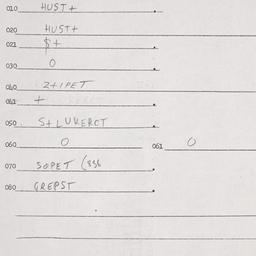 010 HUST+
020 HUST+
021 $+
030 O
040 2+1PET
041 +
050 S+LUKERCT
060 O 061 O
070 SOPET (336
080 GREPST